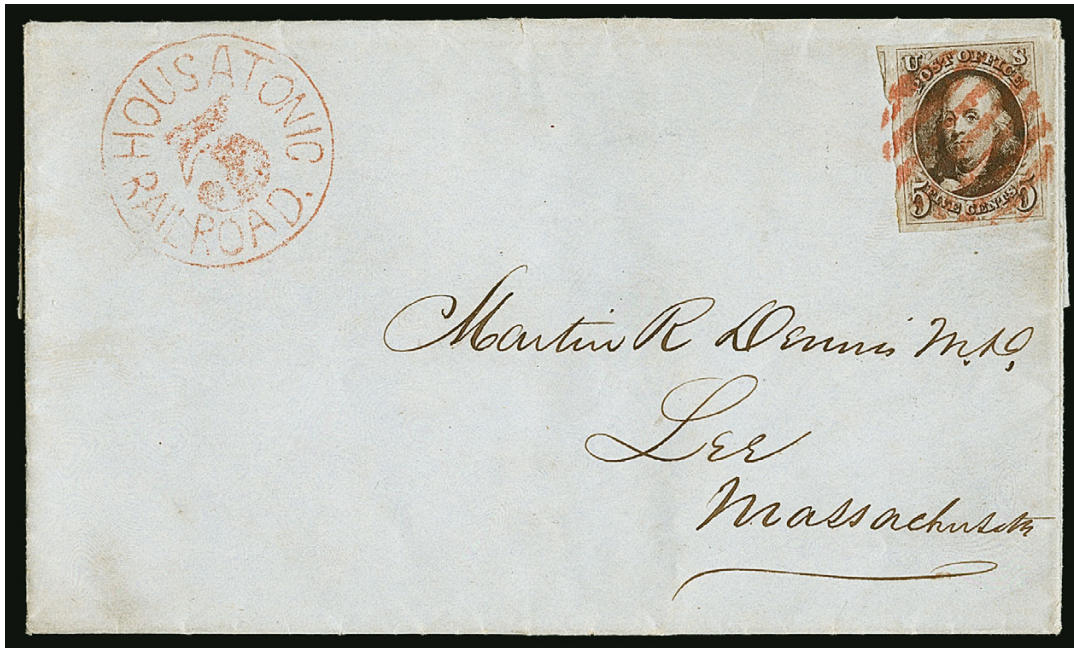 HOUSATONIC
RAILROAD.
U S
POST OFFICE
FIVE CENTS
5 5
Martin R Dennis M.D,
Lee
Massachusetts